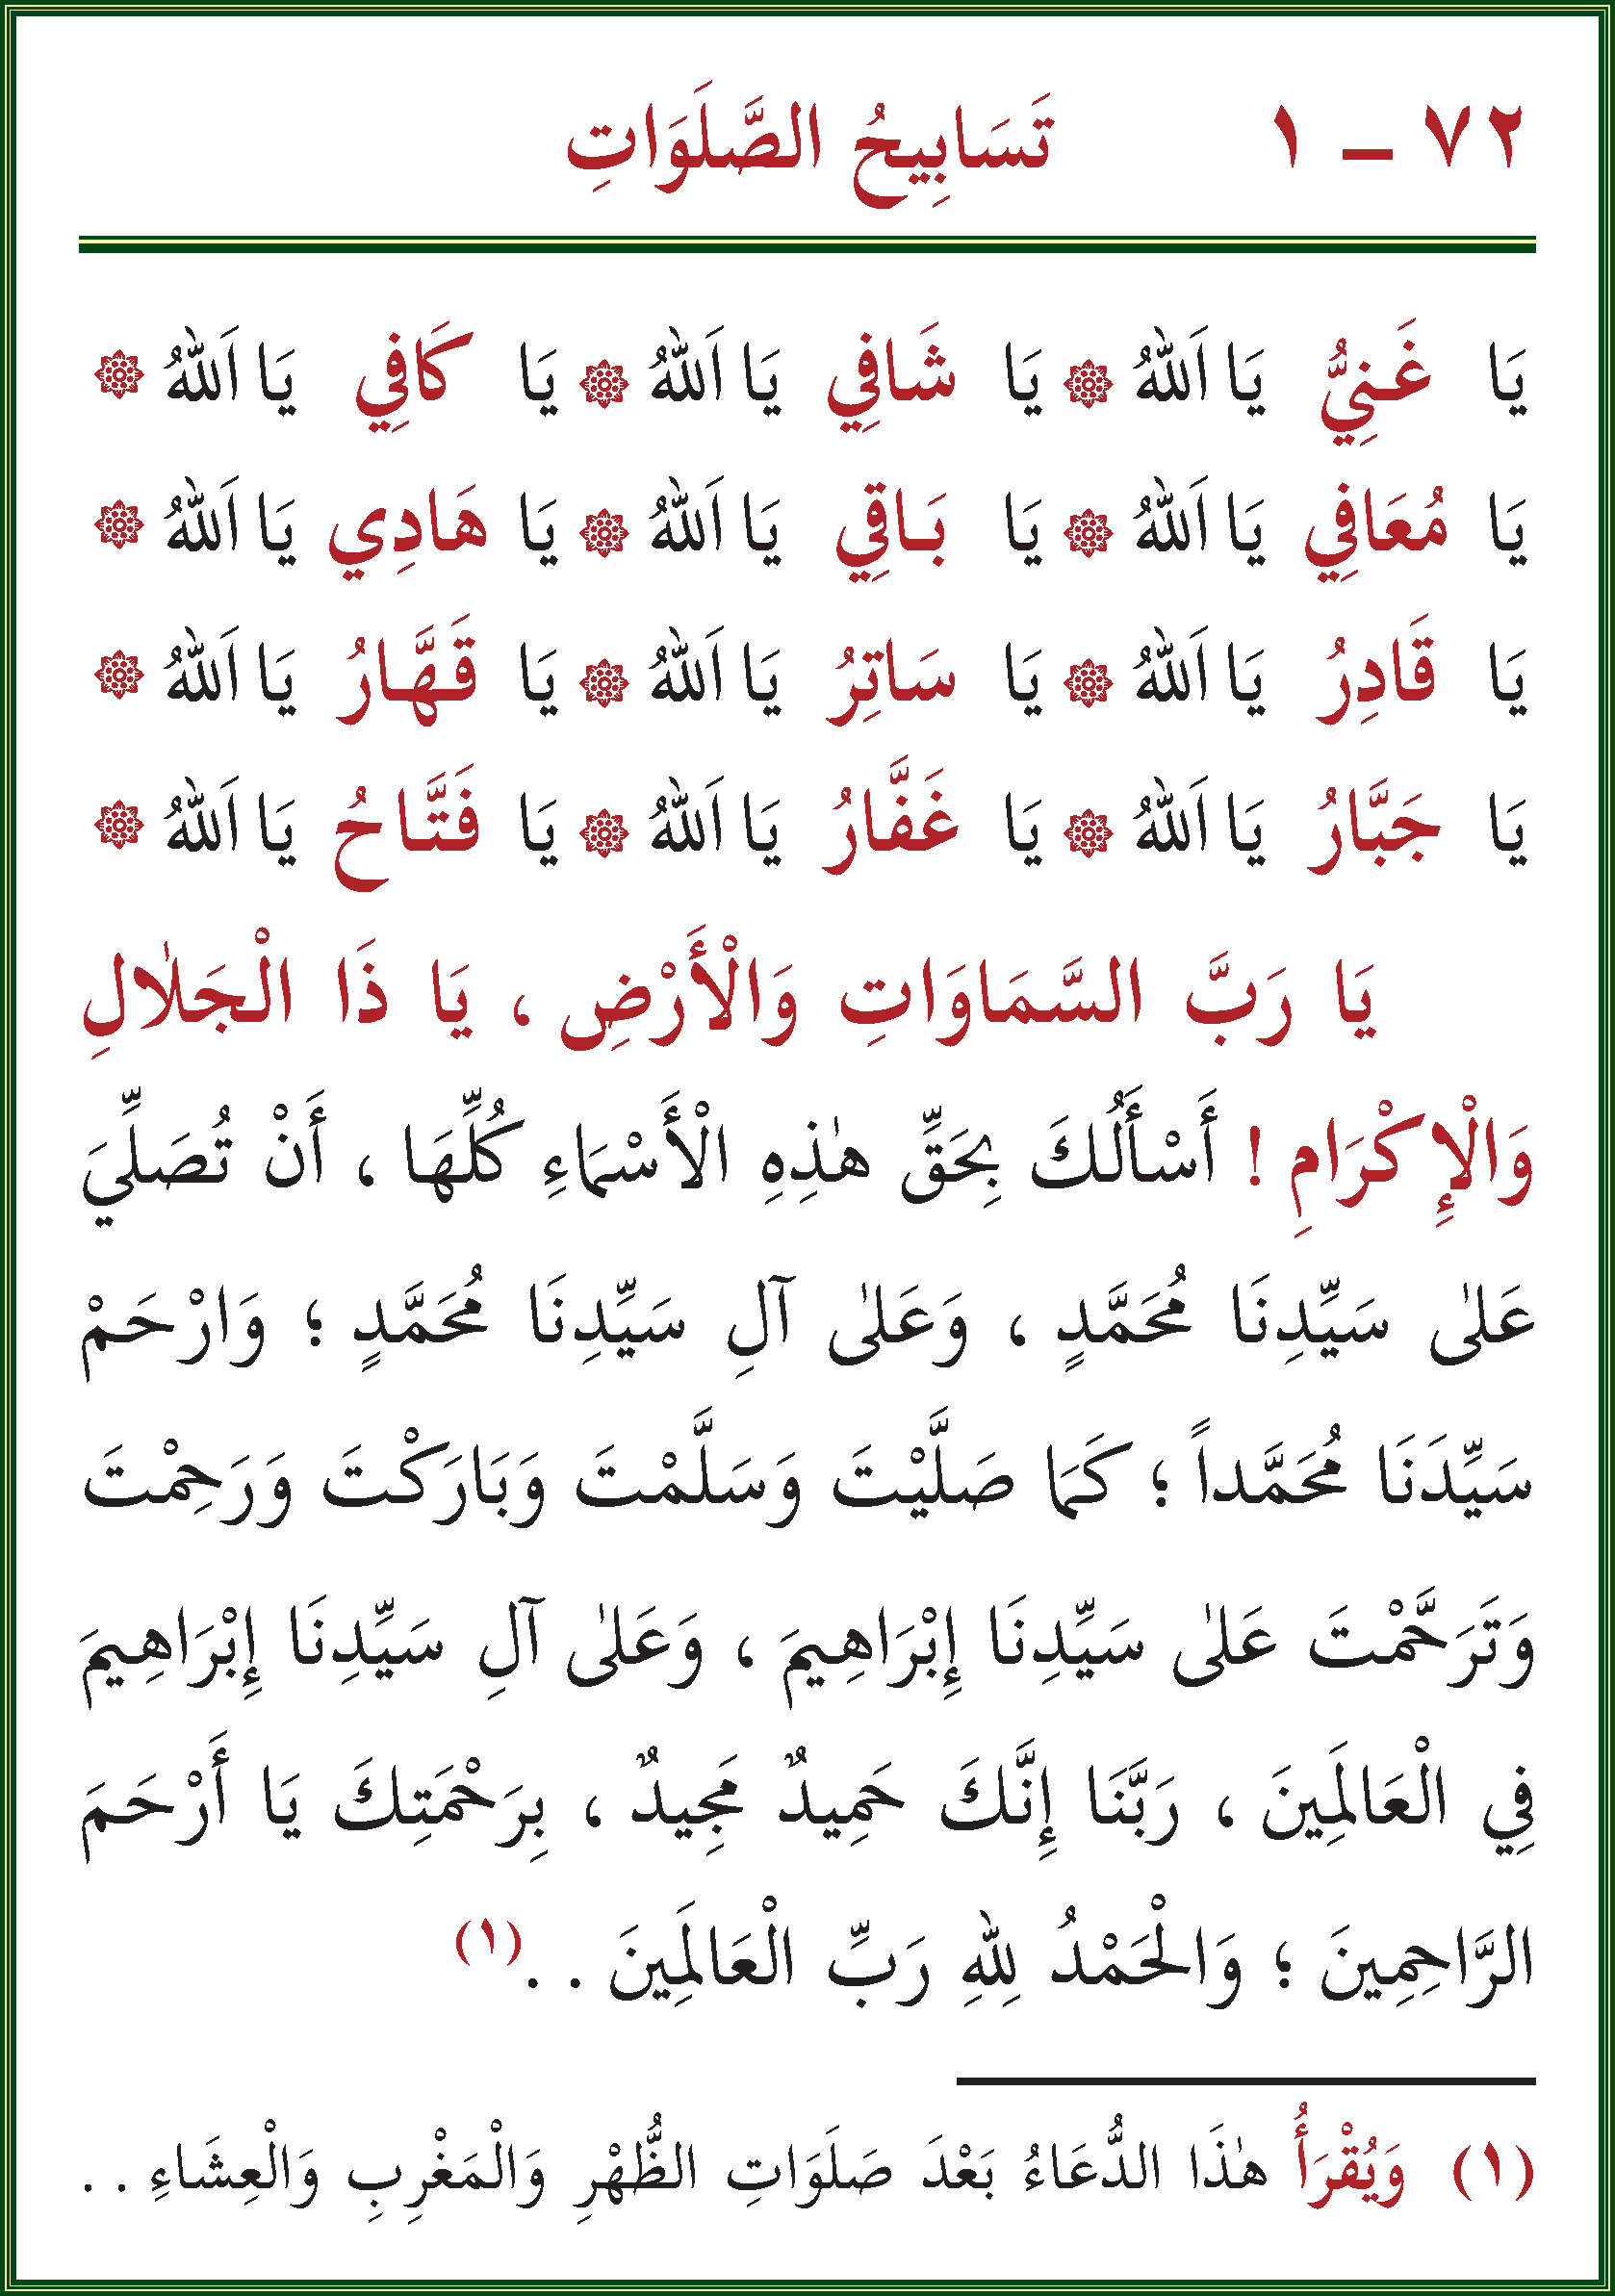 ٧٢ – ١ تَسَابِيحُ الصَّلَوَاتِ
يَا غَنِيُّ يَا اَللّٰهُ ۞ يَا شَافِي يَا اَللّٰهُ ۞ يَا كَافِي يَا اَللّٰهُ ۞
يَا مُعَافِي يَا اَللّٰهُ ۞ يَا بَاقِي يَا اَللّٰهُ ۞ يَا هَادِي يَا اَللّٰهُ ۞
يَا قَادِرُ يَا اَللّٰهُ ۞ يَا سَاتِرُ يَا اَللّٰهُ ۞ يَا قَهَّارُ يَا اَللّٰهُ ۞
يَا جَبَّارُ يَا اَللّٰهُ ۞ يَا غَفَّارُ يَا اَللّٰهُ ۞ يَا فَتَّاحُ يَا اَللّٰهُ ۞
يَا رَبَّ السَّمَاوَاتِ وَالْأَرْضِ ، يَا ذَا الْجَلَالِ
وَالْإِكْرَامِ ! أَسْأَلُكَ بِحَقِّ هٰذِهِ الْأَسْمَاءِ كُلِّهَا ، أَنْ تُصَلِّيَ
عَلىٰ سَيِّدِنَا مُحَمَّدٍ ، وَعَلىٰ آلِ سَيِّدِنَا مُحَمَّدٍ ؛ وَارْحَمْ
سَيِّدَنَا مُحَمَّداً ؛ كَمَا صَلَّيْتَ وَسَلَّمْتَ وَبَارَكْتَ وَرَحِمْتَ
وَتَرَحَّمْتَ عَلىٰ سَيِّدِنَا إِبْرَاهِيمَ ، وَعَلىٰ آلِ سَيِّدِنَا إِبْرَاهِيمَ
فِي الْعَالَمِينَ ، رَبَّنَا إِنَّكَ حَمِيدٌ مَجِيدٌ ، بِرَحْمَتِكَ يَا أَرْحَمَ
الرَّاحِمِينَ ؛ وَالْحَمْدُ لِلّٰهِ رَبِّ الْعَالَمِينَ . .(١)
(١) وَيُقْرَأُ هٰذَا الدُّعَاءُ بَعْدَ صَلَوَاتِ الظُّهْرِ وَالْمَغْرِبِ وَالْعِشَاءِ . .